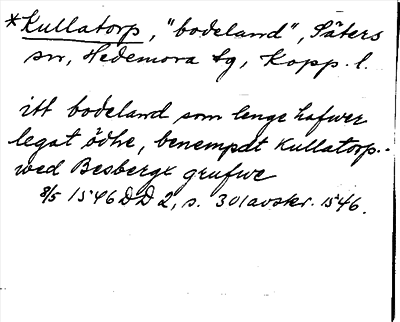 *Kullatorp, "bodeland", Säters
sn, Hedemora tg, Kopp. l.
itt bodeland som lenge hafwer
legat ödhe, benempdt Kullatorp..
wed Besbergx grufwe
8/5 1546 DD 2, s. 301 avskr. 1546.